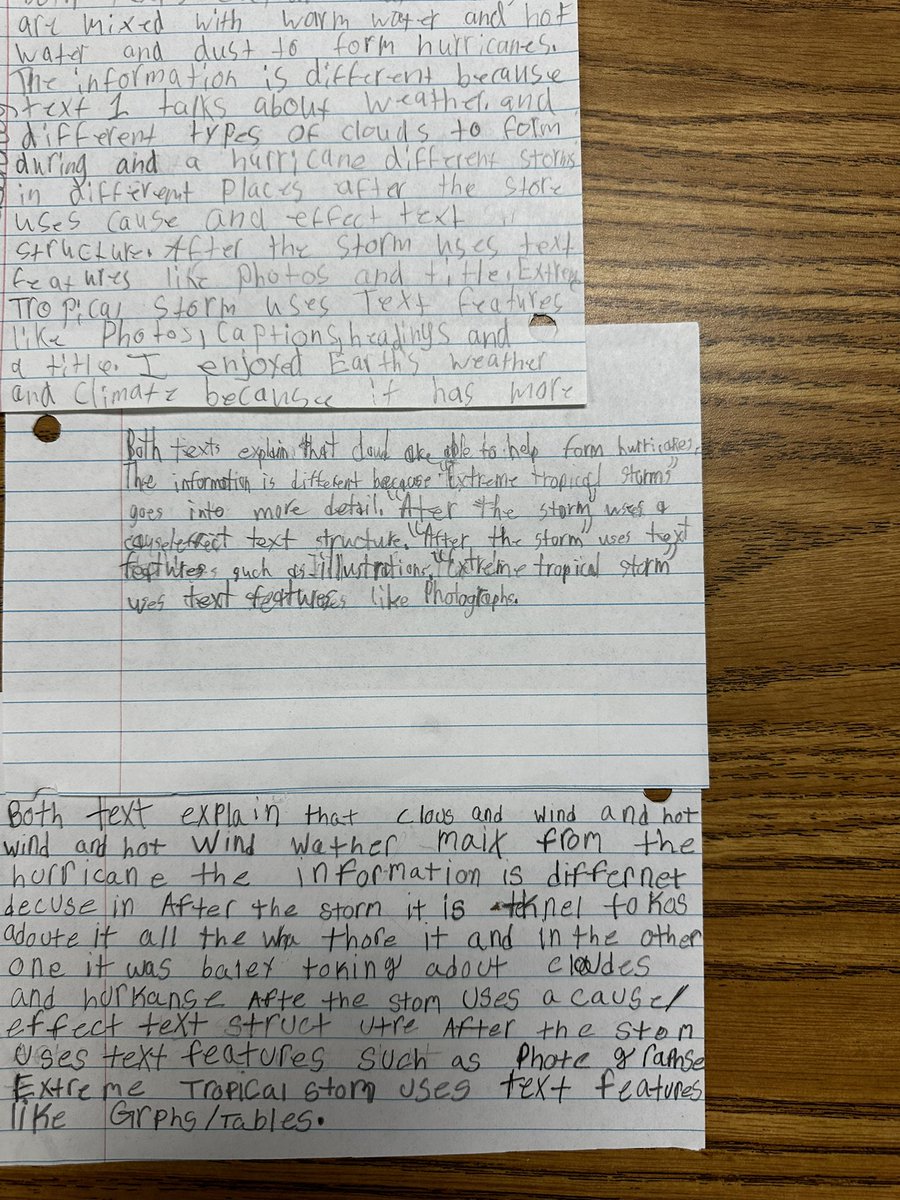 are mixed with warm water and hot
water and dust to form hurricanes.
The information is different because
text 1 talks about weather and
different types of clouds to form
during and a hurricane different storms
in different places after the store
uses cause and effect text
structure. After the storm uses text
features like photos and title. Extrem
Tropical storm uses Text features
like Photos, captions, headings and
a title. I enjoyed Earth's weather
and climate becausee it has more
Both texts explain that cloud are able to help form hurricanes.
The information is different because "Extreme tropical storms"
goes into more detail. "After the storm" uses a
cause/effect text structure. "After the storm" uses text
features such as Illustrations. "Extreme tropical storm"
uses text features like Photographs.
Both text explain that clous and wind and hot
wind and hot wind wather maix from the
hurricane the information is differnet
decuse in After the storm it is to kas
adoute it all the thore it and in the other
one it was toking adout cloudes
and hurkanse Afte the stom uses a cause/
effect text struct utre After the stom
uses text features such as Phote g ramse
Extreme Tropical stom uses text features
like Grphs/Tables.